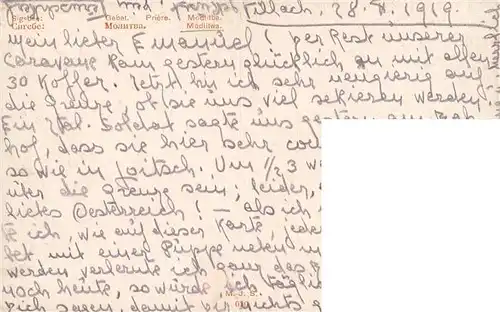 und Villach, 28. X. 1919.
Gebet. Prière. Modlitba.
Молитва. Mádlitwa.
Mein lieber Emanuel! per Rest unserer
Caravane kam gestern glücklich an mit allen
30 Koffer. Jetzt bin ich sehr neugierig auf
die Grenze, ob sie uns viel sekieren werden.
Ein ital. Soldat sagte uns gestern am Bahn
hof, dass sie hier sehr
so wie in Loitsch. Um 1/2 3 w
über die Grenze sein, leider,
liebes Oesterreich! – als ich
te ich, wie auf dieser Karte, jede
tet mit einer Puppe neben m
werden verlernte ich ganz das
noch heute, so würde ich täglich
sagen, damit wir nichts g
M. J. S.